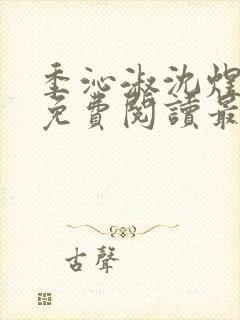 季沁淑沈煜
免費閱讀最
古聲